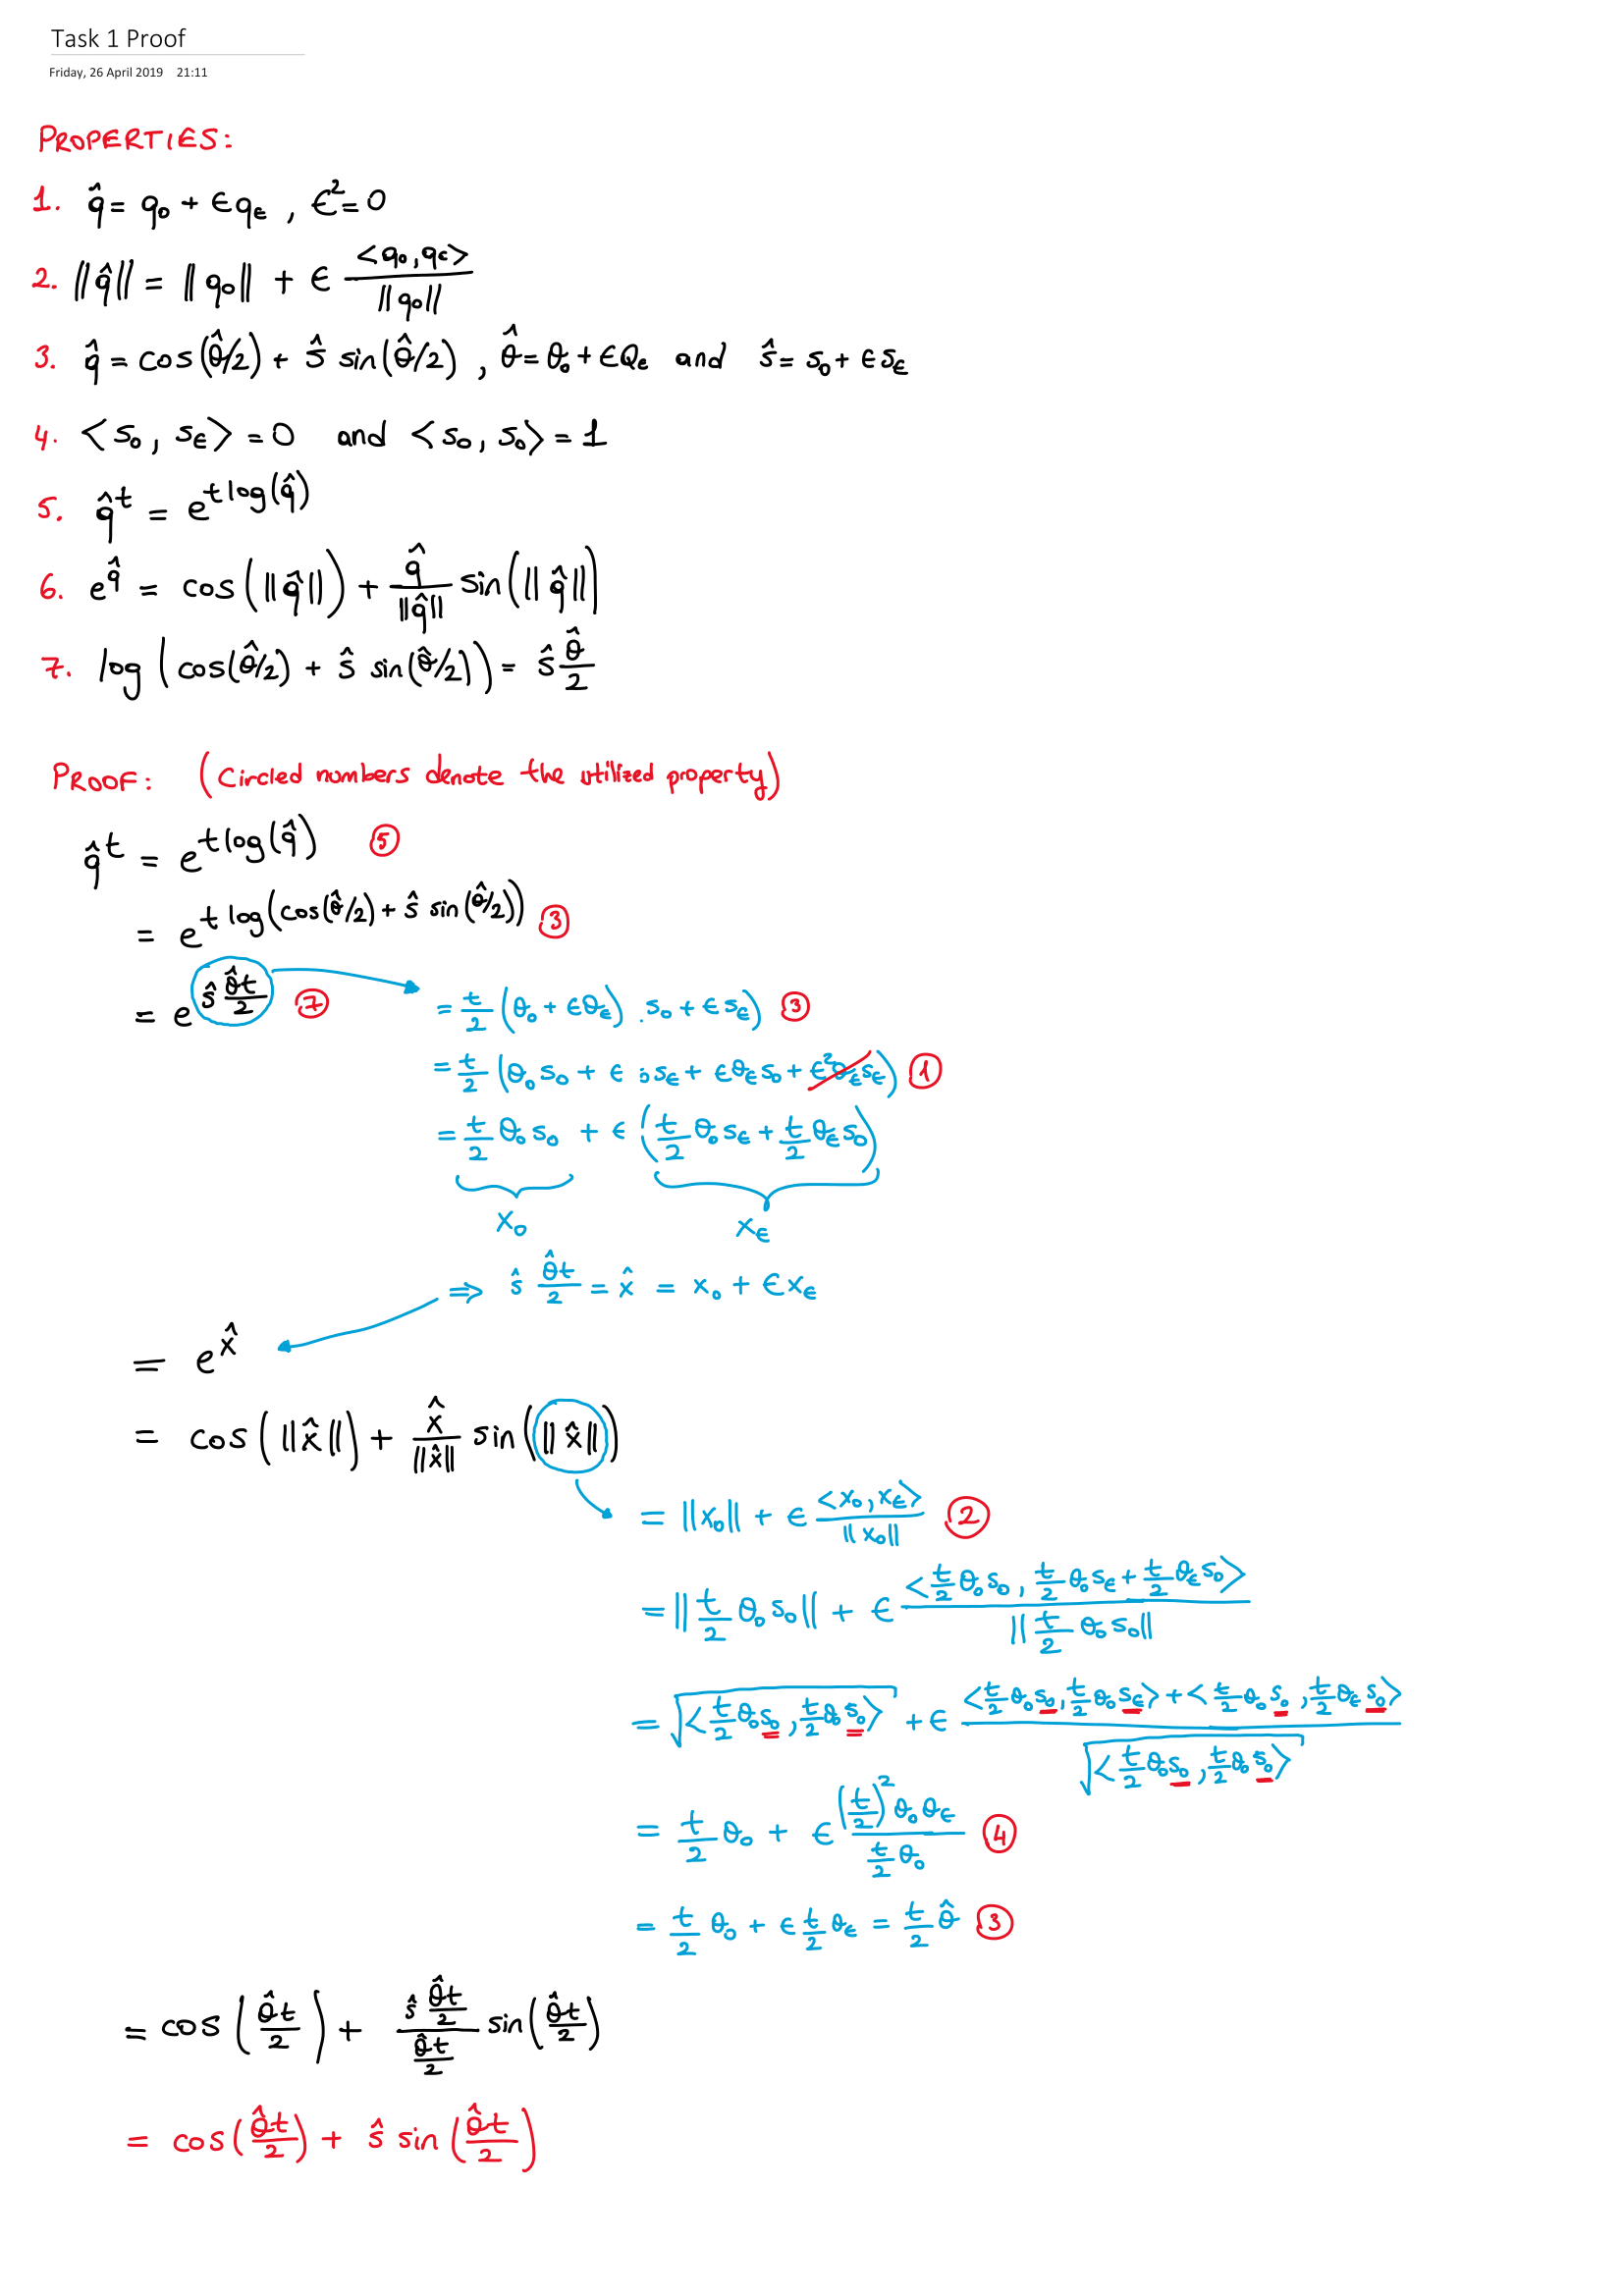 Task 1 Proof
Friday, 26 April 2019 21:11
PROPERTIES:
1. q̂ = q₀ + ϵqϵ , ϵ² = 0
2. ||q̂|| = ||q₀|| + ϵ <q₀, qϵ> / ||q₀||
3. q̂ = cos(θ̂/2) + ŝ sin(θ̂/2) , θ̂ = θ₀ + ϵθϵ and ŝ = s₀ + ϵsϵ
4. <s₀, sϵ> = 0 and <s₀, s₀> = 1
5. q̂^t = e^(t log(q̂))
6. e^q̂ = cos(||q̂||) + q̂/||q̂|| sin(||q̂||)
7. log(cos(θ̂/2) + ŝ sin(θ̂/2)) = ŝ θ̂/2
PROOF: (Circled numbers denote the utilized property)
q̂^t = e^(t log(q̂)) ⑤
= e^(t log(cos(θ̂/2) + ŝ sin(θ̂/2))) ③
= e^(ŝ θ̂t/2) ⑦
= t/2 (θ₀ + ϵθϵ) . s₀ + ϵsϵ) ③
= t/2 (θ₀s₀ + ϵ ₀sϵ + ϵθϵs₀ + ϵ²θϵsϵ) ①
= t/2 θ₀s₀ + ϵ (t/2 θ₀sϵ + t/2 θϵs₀)
x₀ xϵ
⇒ ŝ θ̂t/2 = x̂ = x₀ + ϵxϵ
= e^x̂
= cos(||x̂||) + x̂/||x̂|| sin(||x̂||)
= ||x₀|| + ϵ <x₀, xϵ> / ||x₀|| ②
= ||t/2 θ₀s₀|| + ϵ <t/2 θ₀s₀, t/2 θ₀sϵ + t/2 θϵs₀> / ||t/2 θ₀s₀||
= √<t/2 θ₀s₀, t/2 θ₀s₀> + ϵ (<t/2 θ₀s₀, t/2 θ₀sϵ> + <t/2 θ₀s₀, t/2 θϵs₀>) / √<t/2 θ₀s₀, t/2 θ₀s₀>
= t/2 θ₀ + ϵ (t/2)² θ₀θϵ / (t/2 θ₀) ④
= t/2 θ₀ + ϵ t/2 θϵ = t/2 θ̂ ③
= cos(θ̂t/2) + (ŝ θ̂t/2) / (θ̂t/2) sin(θ̂t/2)
= cos(θ̂t/2) + ŝ sin(θ̂t/2)